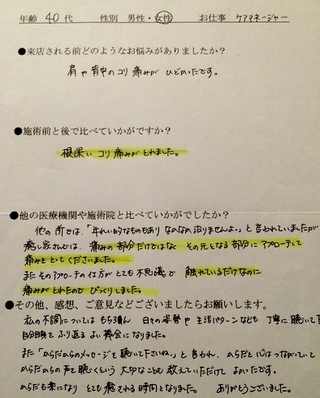 年齢 40代 性別 男性・女性 お仕事 ケアマネージャー
●来店される前どのようなお悩みがありましたか？
肩や背中のコリ痛みがひどかったです。
●施術前と後で比べていかがですか？
根深いコリ痛みがとれました。
●他の医療機関や施術院と比べていかがでしたか？
他の所では、「年れい的なものもありなかなか治りませんよ。」と言われていましたが
痛みの部分だけではなく その元となる部分にアプローチして
痛みをとってくださいました。
またそのアプローチの仕方がとても不思議で 触れているだけなのに
痛みがとれたので びっくりしました。
●その他、感想、ご意見などございましたらお願いします。
私の不調についてはもちろん 日々の姿勢や生活パターンなども丁寧に聴いて下
自分自身をふり返るよい機会になりました。
また「からだからのメッセージを聴いて下さいね。」と言われ、からだと心はつながっていて
からだからの声を聴くという大切なことも教えていただけてよかったです。
からだも楽になり とても癒される時間となりました。 ありがとうございました。